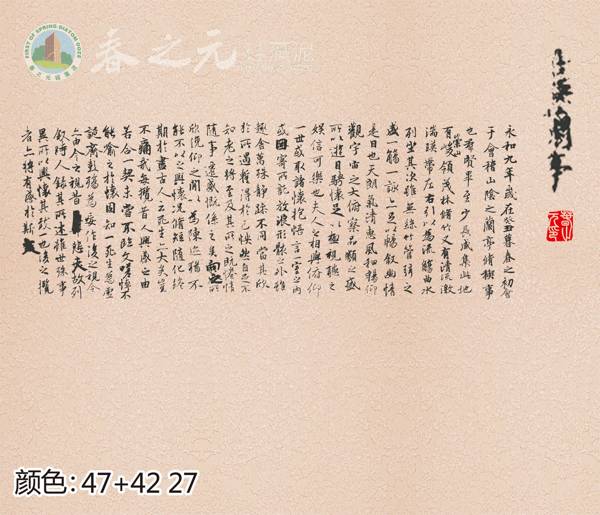 FIRST OF SPRING DIATOM OOZE
春之元硅藻泥
春之元
硅藻泥
永和九年歲在癸丑暮春之初會
于會稽山陰之蘭亭脩禊事
也群賢畢至少長咸集此地
有崇山峻領茂林脩竹又有清流激
湍暎帶左右引以為流觴曲水
列坐其次雖無絲竹管弦之
盛一觴一詠亦足以暢敘幽情
是日也天朗氣清惠風和暢仰
觀宇宙之大俯察品類之盛
所以遊目騁懷足以極視聽之
娛信可樂也夫人之相與俯仰
一世或取諸懷抱悟言一室之內
或因寄所託放浪形骸之外雖
趣舍萬殊靜躁不同當其欣
於所遇暫得於己怏然自足不
知老之將至及其所之既惓情
隨事遷感慨係之矣向之所
欣俛仰之間以為陳迹猶不
能不以之興懷況脩短隨化終
期於盡古人云死生亦大矣豈
不痛哉每攬昔人興感之由
若合一契未嘗不臨文嗟悼不
能喻之於懷固知一死生為虛
誕齊彭殤為妄作後之視今
亦由今之視昔悲夫故列
敘時人錄其所述雖世殊事
異所以興懷其致一也後之攬
者亦將有感於斯文
颜色: 47+42 27